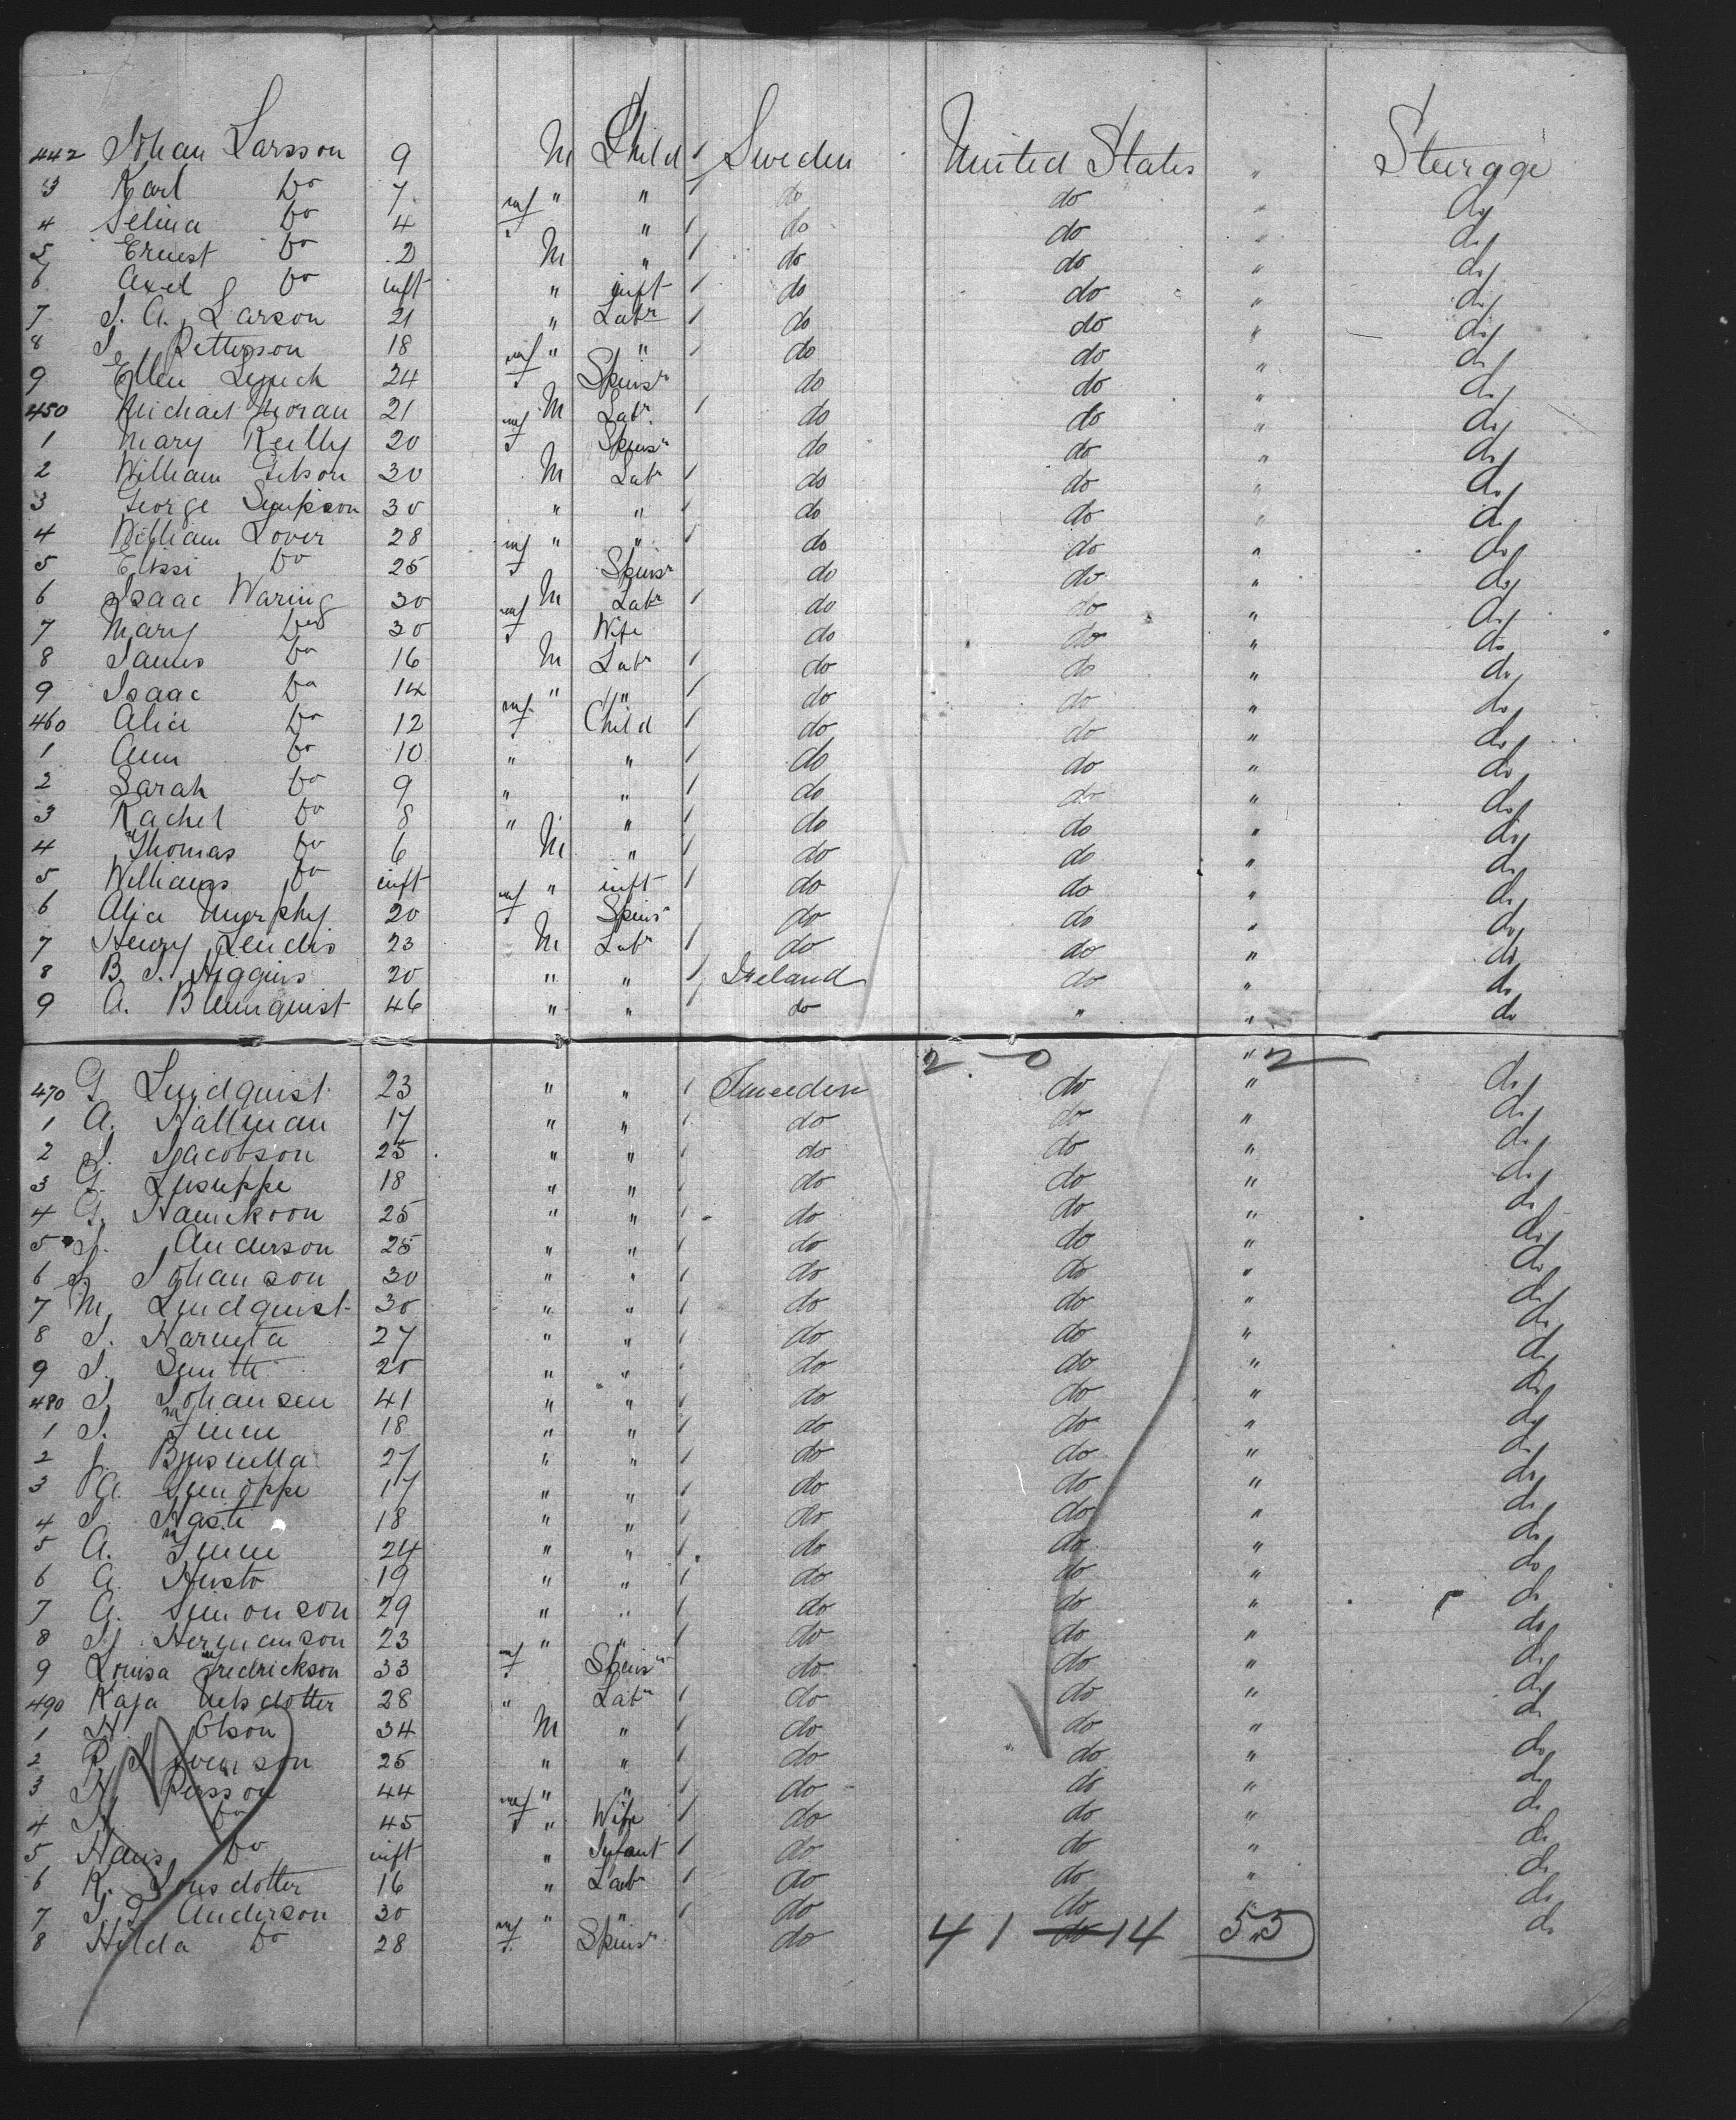 442 Johan Larsson 9 M Child Sweden United States " Steerage
3 Karl Do 7 " " do do " do
4 Selina Do 4 f " do do " do
5 Ernest Do 2 M " do do " do
6 Axel Do inft " inft do do " do
7 J. A. Larson 21 " Labr do do " do
8 J Petterson 18 " " do do " do
9 Ellen 24 f Spinsr do do " do
450 Michael Moran 21 M Labr do do " do
1 Mary Reilly 20 f Spinsr do do " do
2 William Gibson 30 M Labr do do " do
3 George Simpson 30 " " do do " do
4 William Lover 28 " " do do " do
5 Do 25 f Spinsr do do " do
6 Isaac Waring 30 M Labr do do " do
7 Mary Do 30 f Wife do do " do
8 James Do 16 M Labr do do " do
9 Isaac Do 14 " " do do " do
460 Alice Do 12 f Child do do " do
1 Ann Do 10 " " do do " do
2 Sarah Do 9 " " do do " do
3 Rachel Do 8 " " do do " do
4 Thomas Do 6 M " do do " do
5 Williams Do inft " inft do do " do
6 Alice Murphy 20 f Spinsr do do " do
7 Henry 23 M Labr do do " do
8 B. J. Higgins 20 " " Ireland do " do
9 A. Blumquist 46 " " do " " do
2 - 0 " 2
470 G Lindquist 23 " " Sweeden do " do
1 A. Hallman 17 " " do do " do
2 J. Jacobson 25 " " do do " do
3 G. 18 " " do do " do
4 G. 25 " " do do " do
5 J. Anderson 25 " " do do " do
6 Johanson 30 " " do do " do
7 M. Lindquist 30 " " do do " do
8 J. 27 " " do do " do
9 J. 20 " " do do " do
480 J. Johansen 41 " " do do " do
1 J. 18 " " do do " do
2 J. 27 " " do do " do
3 A. 17 " " do do " do
4 J. 18 " " do do " do
5 A. 24 " " do do " do
6 A. 19 " " do do " do
7 A. Simonson 29 " " do do " do
8 Hermanson 23 " " do do " do
9 Louisa Fredrickson 33 f Spinsr do do " do
490 Kaja Nelsdotter 28 " Labr do do " do
1 N. Olson 34 M " do do " do
2 P. Svenson 25 " " do do " do
3 N Persson 44 " " do do " do
4 Do 45 f " Wife do do " do
5 Hans Do inft " Infant do do " do
6 K. Jonsdotter 16 " Labr do do " do
7 J. G Anderson 30 " " do do " do
8 Hilda Do 28 f Spinsr do 41 do 14 53 do